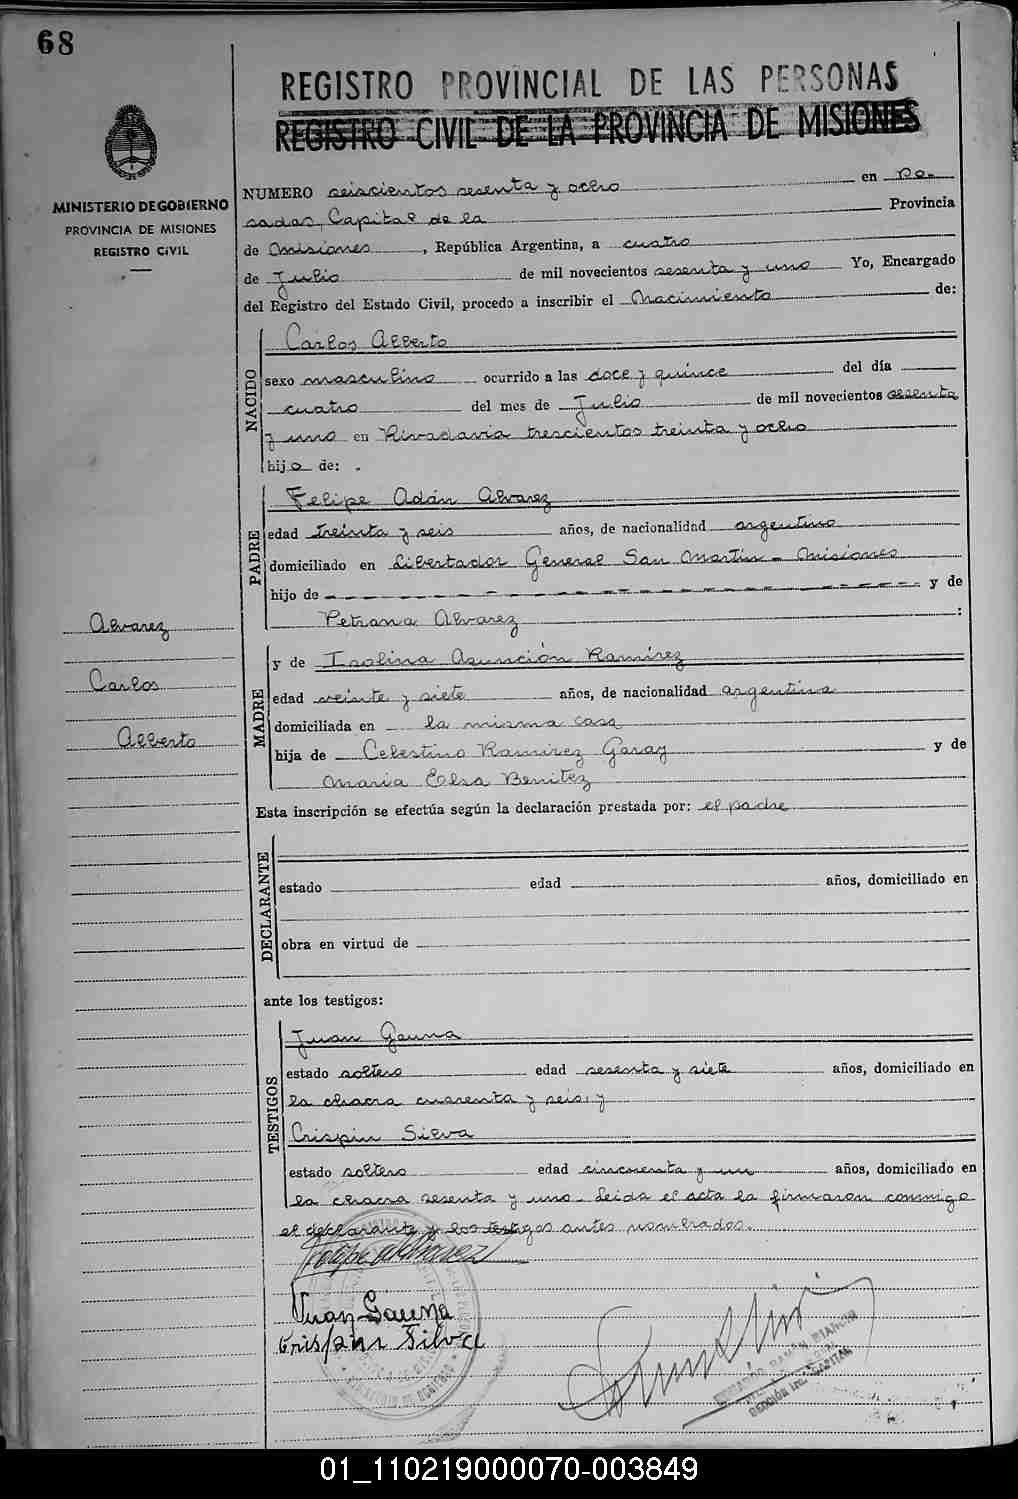 68
REGISTRO PROVINCIAL DE LAS PERSONAS
REGISTRO CIVIL DE LA PROVINCIA DE MISIONES
MINISTERIO DE GOBIERNO
PROVINCIA DE MISIONES
REGISTRO CIVIL
NUMERO seiscientos sesenta y ocho en Po-
sadas, Capital de la Provincia
de Misiones, República Argentina, a cuatro
de Julio de mil novecientos sesenta y uno Yo, Encargado
del Registro del Estado Civil, procedo a inscribir el Nacimiento de:
NACIDO
Carlos Alberto
sexo masculino ocurrido a las doce y quince del día
cuatro del mes de Julio de mil novecientos sesenta
y uno en Rivadavia trescientos treinta y ocho
hijo de:
PADRE
Felipe Adán Alvarez
edad treinta y seis años, de nacionalidad argentino
domiciliado en Libertador General San Martín - Misiones
hijo de - - - - - - - - - - - - - - - - - - y de
Petrona Alvarez :
Alvarez
Carlos
Alberto
MADRE
y de Isolina Asunción Ramírez
edad veinte y siete años, de nacionalidad argentina
domiciliada en la misma casa
hija de Celestino Ramirez Garay y de
María Elsa Benítez
Esta inscripción se efectúa según la declaración prestada por: el padre
DECLARANTE
estado edad años, domiciliado en
obra en virtud de
ante los testigos:
TESTIGOS
Juan Gauna
estado soltero edad sesenta y siete años, domiciliado en
la chacra cuarenta y seis, y
Crispin Silva
estado soltero edad cincuenta y un años, domiciliado en
la chacra sesenta y uno - Leida el acta la firmaron conmigo
el declarante y los testigos antes nombrados.
Felipe A Alvarez
Juan Gauna
Crispin Silva
SECCIÓN 1ra. CAPITAL
01_110219000070-003849